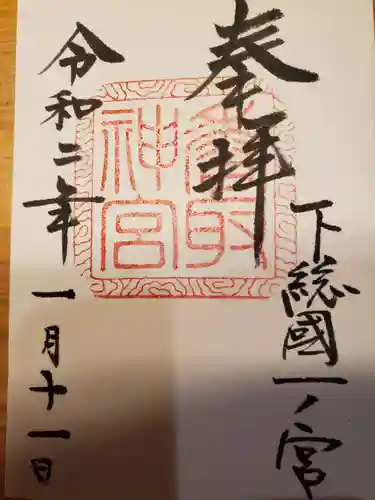 奉拝
下総國一ノ宮
香取神宮
令和二年一月十一日